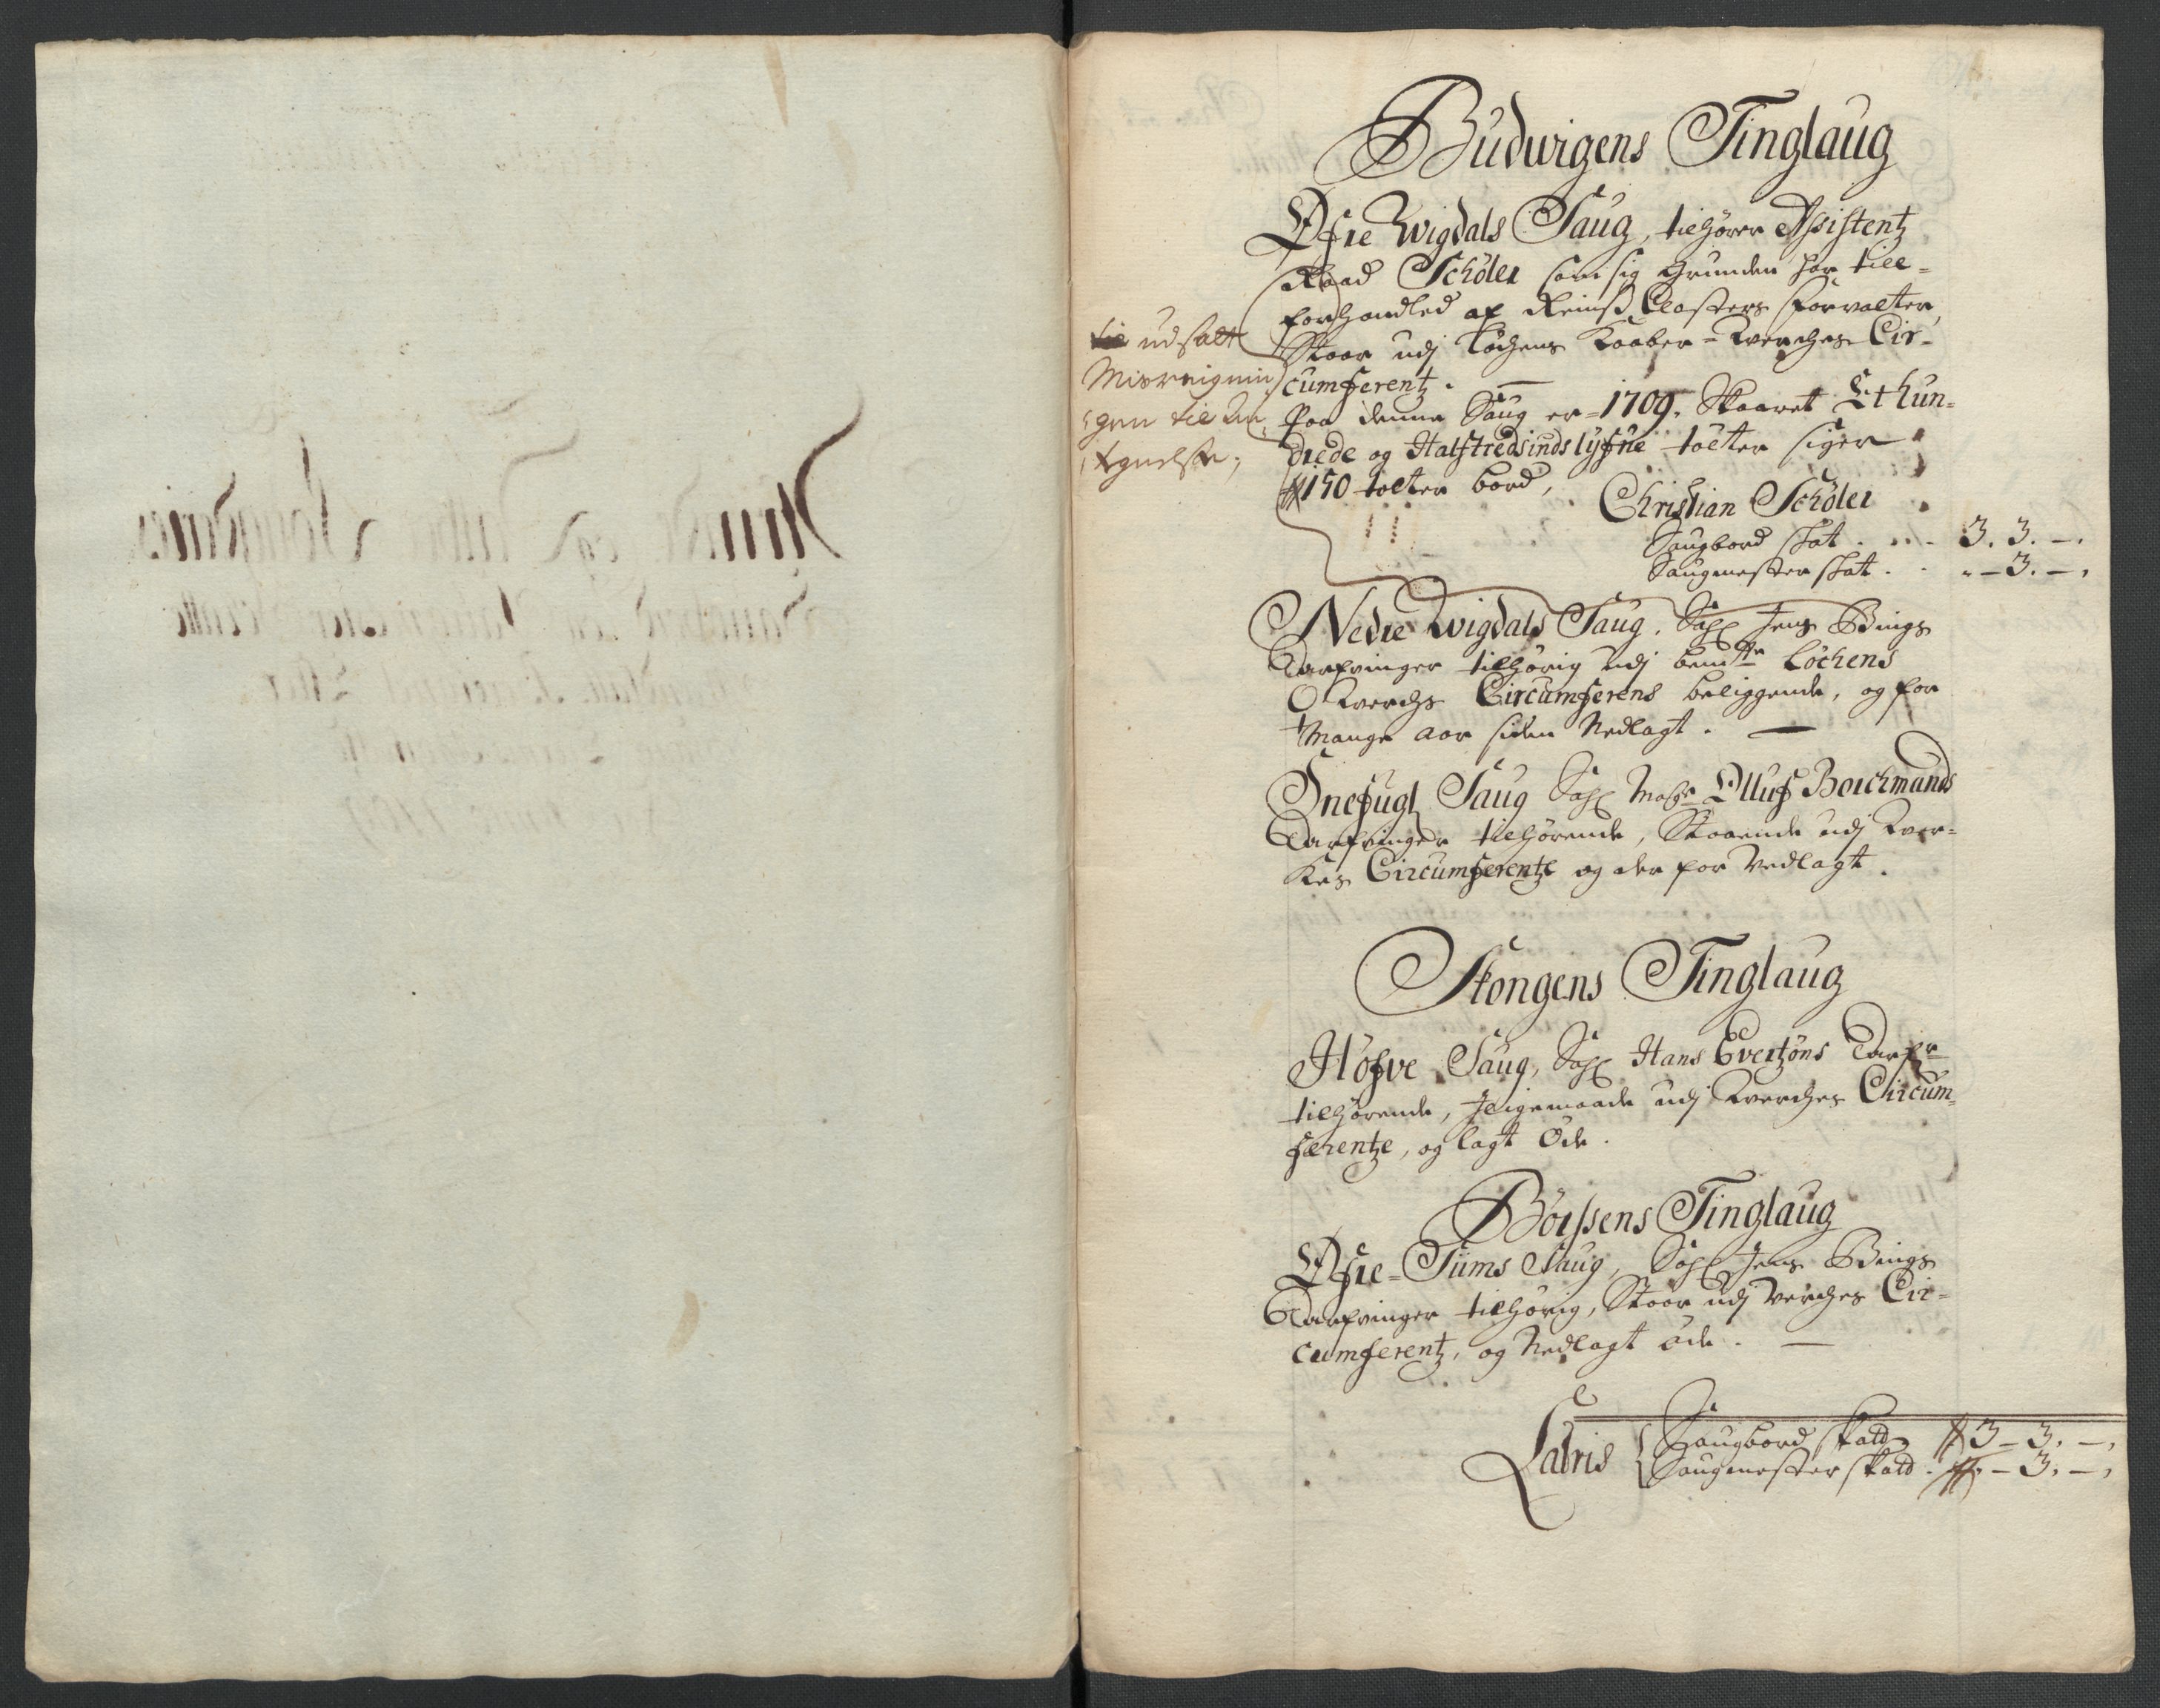 Budwigens Tinglaug
Øfre Wigdals Saug, tilhører Assistentz
Raad Schøler som sig Grunden har till=
forhandled af Reins Closters forvalter,
Staar udj Løchens Kaaber=Werches Cir=
cumferentz.
Paa denne Saug er 1709. Skaaret Et hun=
drede og Halftredsindstyfne tolter siger
150 tolter bord,
Christian Schøler
Saugbord skat . . . 3. 3. —.
Saugmester skat . . — 3. —.
udsatt
Misreignin
gen til
Nedre Wigdals Saug. Sahl Jens Bings
Arfvinger tilhørig udj bemte Løchens
Werchs Circumferens beliggende, og for
Mange Aar siden Nedlagt.
Snefugl Saug Sahl Magr Olluf Borchmands
Arfvinger tilhørende, Staaende udj Wer=
kes Circumferentze og der for Nedlagt.
Stongens Tinglaug
Høfve Saug, Sahl Hans Evertzøns Arfr
tilhørende, Jligemaade udj Werches Circum=
ferentze, og lagt Øde.
Børssens Tinglaug
Øfre=Tiims Saug, Sahl Jens Bings
Arfvinger tilhørig, Staar udj Verches Cir=
cumferentz, og Nedlagt øde.
Latris Saugbord skatt 3 — 3. —.
Saugmester skatt . — 3. —.